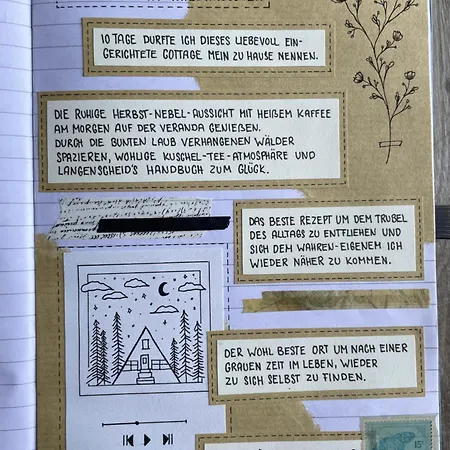 10 TAGE DURFTE ICH DIESES LIEBEVOLL EIN-
GERICHTETE COTTAGE MEIN ZU HAUSE NENNEN.
DIE RUHIGE HERBST-NEBEL-AUSSICHT MIT HEIßEM KAFFEE
AM MORGEN AUF DER VERANDA GENIEßEN.
DURCH DIE BUNTEN LAUB VERHANGENEN WÄLDER
SPAZIEREN, WOHLIGE KUSCHEL-TEE-ATMOSPHÄRE UND
LANGENSCHEID'S HANDBUCH ZUM GLÜCK.
DAS BESTE REZEPT UM DEM TRUBEL
DES ALLTAGS ZU ENTFLIEHEN UND
SICH DEM WAHREN-EIGENEM ICH
WIEDER NÄHER ZU KOMMEN.
DER WOHL BESTE ORT UM NACH EINER
GRAUEN ZEIT IM LEBEN, WIEDER
ZU SICH SELBST ZU FINDEN.